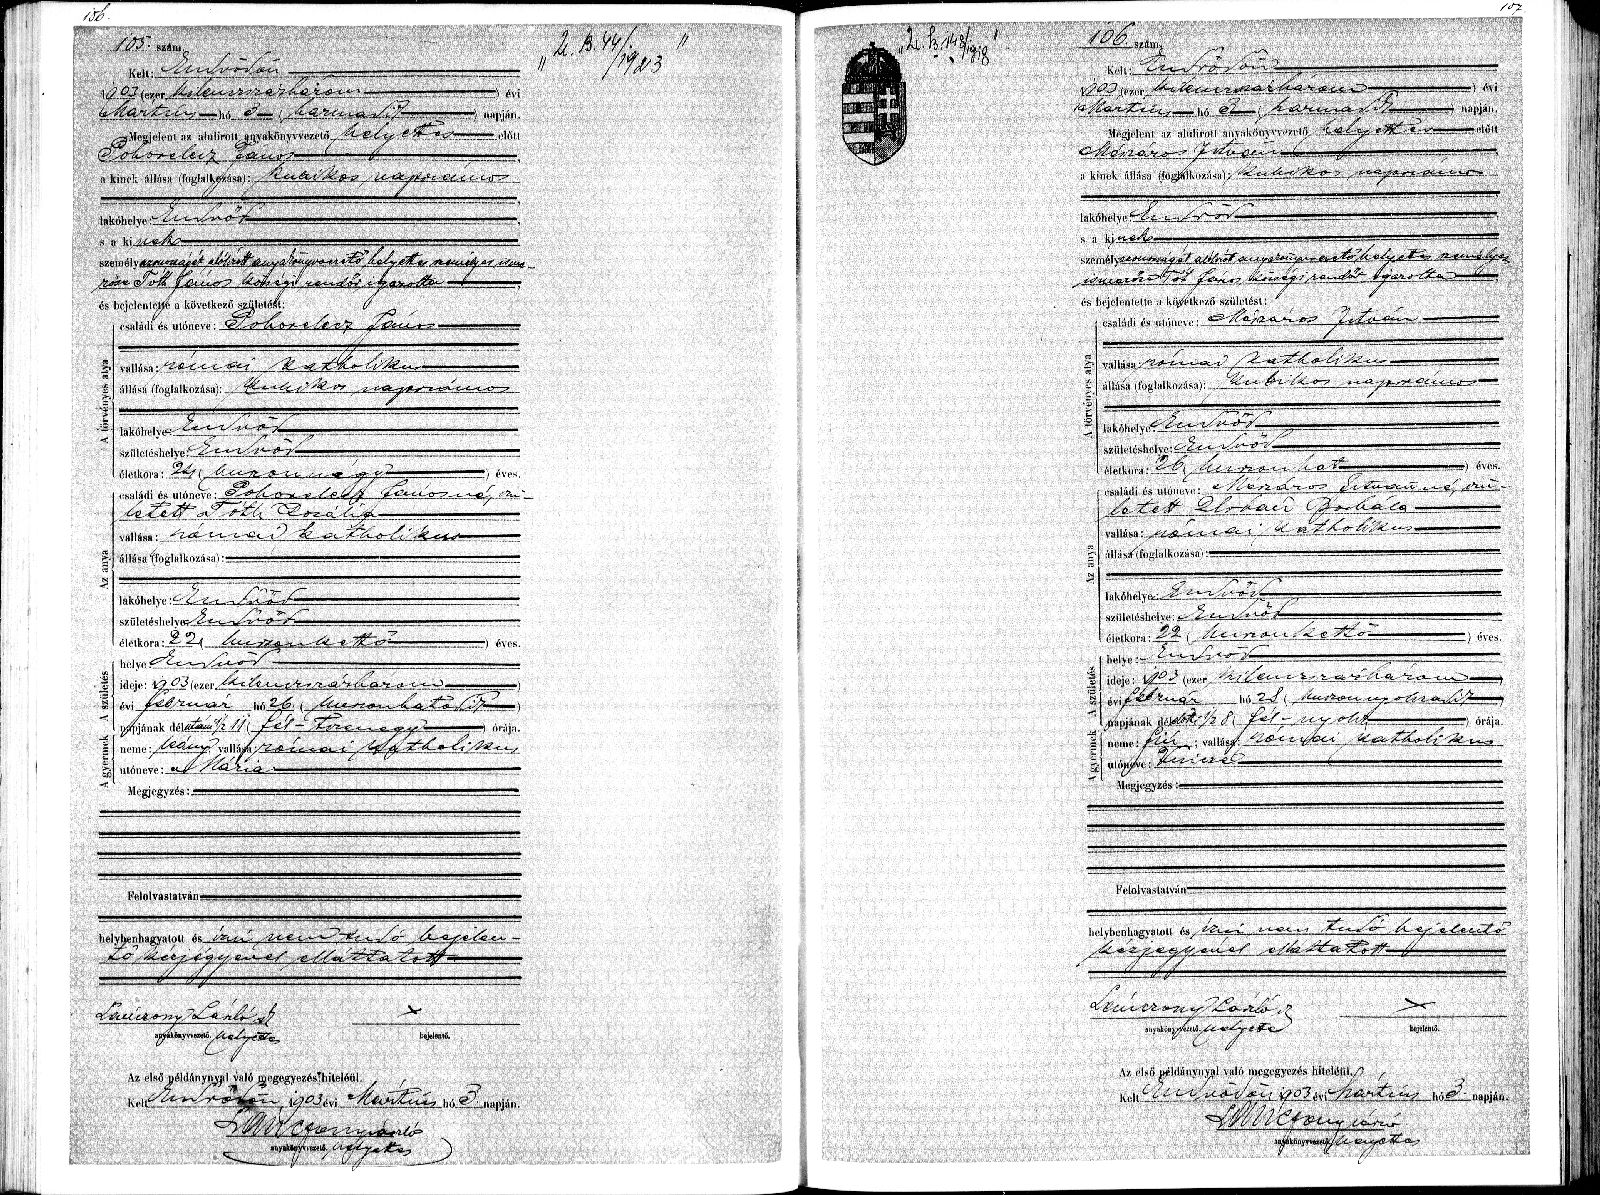 156.
105. szám.
Kelt: Endrődön
1903 (ezer kilenczszázhárom) évi
Martius hó 3 (harmadik) napján.
Megjelent az alulirott anyakönyvvezető helyettes előtt
János
a kinek állása (foglalkozása): kubikos napszámos
lakóhelye: Endrőd
s a kinek
személyazonosságát alólírott anyakönyvvezető helyettes személyes isme-
rőse Tóth János községi rendőr igazolta
és bejelentette a következő születést:
A törvényes atya
családi és utóneve: János
vallása: római katholikus
állása (foglalkozása): kubikos napszámos
lakóhelye: Endrőd
születéshelye: Endrőd
életkora: 24 (huszonnégy) éves.
Az anya
családi és utóneve: Jánosné, szü-
letett Tóth Rozália
vallása: római katholikus
állása (foglalkozása):
lakóhelye: Endrőd
születéshelye: Endrőd
életkora: 22 (huszonkettő) éves.
A gyermek A születés
helye: Endrőd
ideje: 1903 (ezer kilenczszázhárom)
évi február hó 26 (huszonhatodik)
napjának délután 1/2 11 (fél-tizenegy) órája.
neme: leány; vallása: római katholikus
utóneve: Mária
Megjegyzés:
Felolvastatván
helybenhagyatott és írni nem tudó bejelen-
tő kézjegyével elláttatott
László
anyakönyvvezető helyettes
×
bejelentő.
Az első példánynyal való megegyezés hiteléül.
Kelt Endrődön, 1903 évi Mártius hó 3 napján.
László
anyakönyvvezető helyettes
106 szám.
Kelt: Endrődön
1903 (ezer kilenczszázhárom) évi
Martius hó 3 (harmadik) napján.
Megjelent az alulirott anyakönyvvezető helyettes előtt
Mészáros István
a kinek állása (foglalkozása): kubikos napszámos
lakóhelye: Endrőd
s a kinek
személyazonosságát alólírott anyakönyvvezető helyettes személyes
ismerőse Tót János községi rendőr igazolta
és bejelentette a következő születést:
A törvényes atya
családi és utóneve: Mészáros István
vallása: római katholikus
állása (foglalkozása): kubikos napszámos
lakóhelye: Endrőd
születéshelye: Endrőd
életkora: 26 (huszonhat) éves.
Az anya
családi és utóneve: Mészáros Istvánné, szü-
letett Borbála
vallása: római katholikus
állása (foglalkozása):
lakóhelye: Endrőd
születéshelye: Endrőd
életkora: 22 (huszonkettő) éves.
A gyermek A születés
helye: Endrőd
ideje: 1903 (ezer kilenczszázhárom)
évi február hó 28 (huszonnyolczadik)
napjának délelőtti 1/2 8 (fél-nyolcz) órája.
neme: fiú; vallása: római katholikus
utóneve:
Megjegyzés:
Felolvastatván
helybenhagyatott és írni nem tudó bejelentő
kézjegyével elláttatott
László
anyakönyvvezető helyettes
×
bejelentő.
Az első példánynyal való megegyezés hiteléül.
Kelt Endrődön 1903 évi Mártius hó 3 napján.
László
anyakönyvvezető helyettes